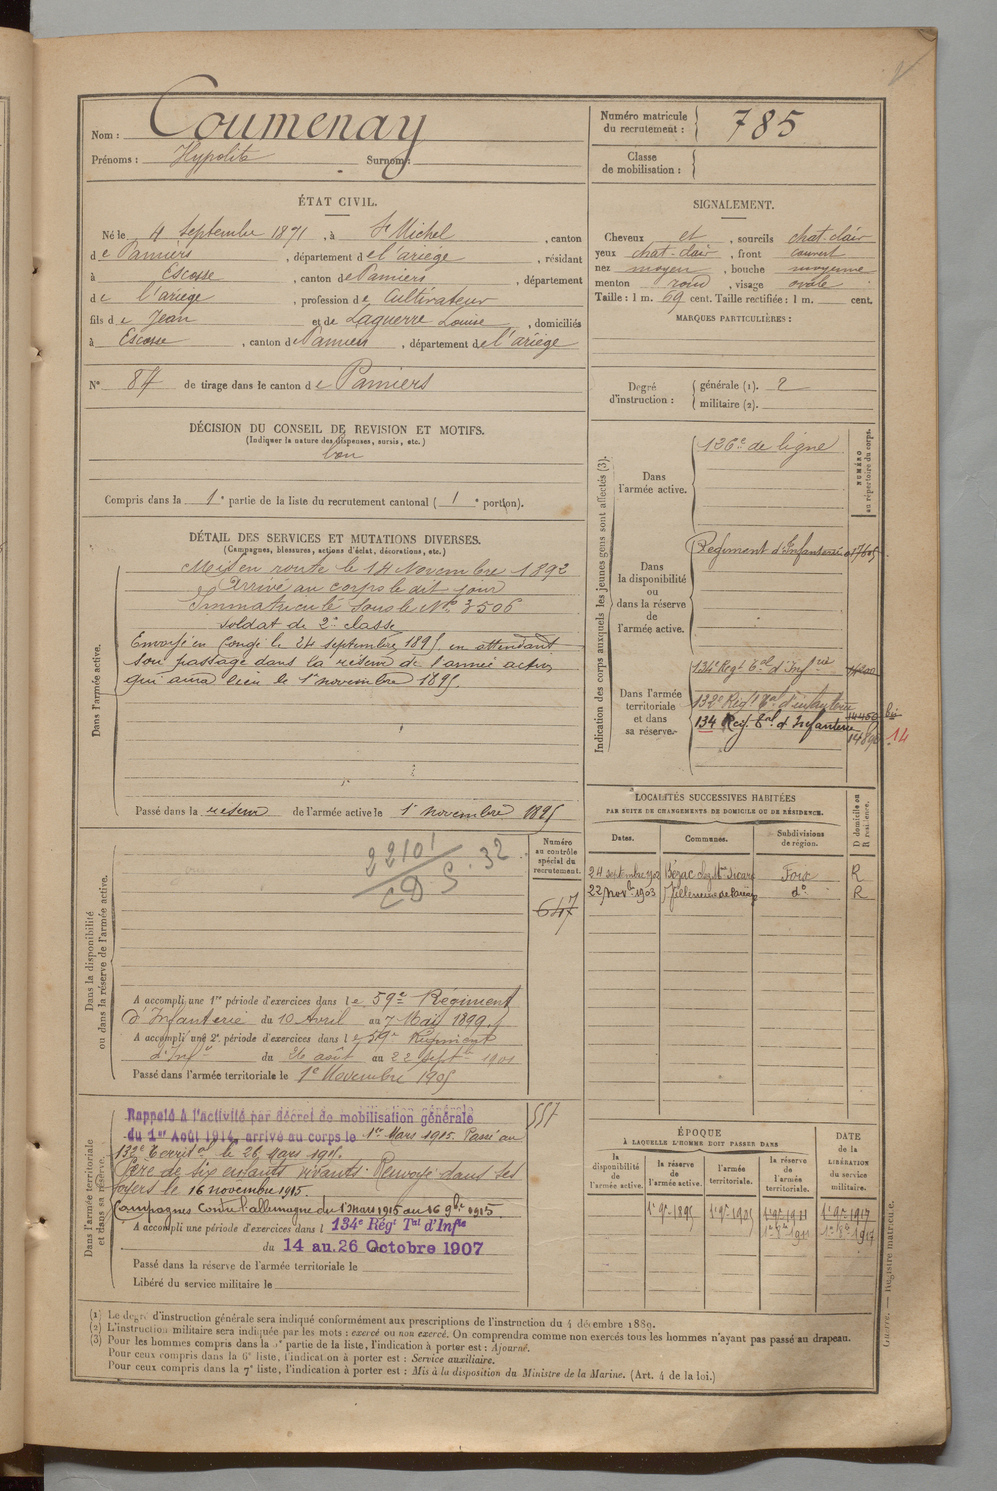 Nom : Coumenay
Prénoms : Hypolite Surnom :
Numéro matricule du recrutement : 785
Classe de mobilisation :
ÉTAT CIVIL.
Né le 4 Septembre 1871, à St Michel, canton
de Pamiers, département de l'ariège, résidant
à Escosse, canton de Pamiers, département
de l'ariège, profession de Cultivateur
fils de Jean et de Laguerre Louise, domiciliés
à Escosse, canton de Pamiers, département de l'ariège
N° 87 de tirage dans le canton de Pamiers
SIGNALEMENT.
Cheveux et, sourcils chat-clair
yeux chat-clair, front couvert
nez moyen, bouche moyenne
menton rond, visage ovale
Taille : 1 m. 69 cent. Taille rectifiée : 1 m. cent.
MARQUES PARTICULIÈRES :
Degré d'instruction : générale (1). 2
militaire (2).
DÉCISION DU CONSEIL DE REVISION ET MOTIFS.
(Indiquer la nature des dispenses, sursis, etc.)
bon
Compris dans la 1e partie de la liste du recrutement cantonal (1e portion).
DÉTAIL DES SERVICES ET MUTATIONS DIVERSES.
(Campagnes, blessures, actions d'éclat, décorations, etc.)
Dans l'armée active.
Mis en route le 14 Novembre 1892
Arrivé au corps le dit jour
Immatriculé sous le N° 3506
soldat de 2e classe
Envoyé en Congé le 24 septembre 1895 en attendant
son passage dans la réserve de l'armée active
qui aura lieu le 1er novembre 1895.
Passé dans la réserve de l'armée active le 1er novembre 1895
Indication des corps auxquels les jeunes gens sont affectés (3).
NUMÉRO au répertoire du corps.
Dans l'armée active.
126e de ligne
Dans la disponibilité ou dans la réserve de l'armée active.
Régiment d'Infanterie
Dans l'armée territoriale et dans sa réserve.
134e Regt Tal d'Infrie
132e Regt Tal d'infanterie
134 Reg. Tal d'Infanterie
14
LOCALITÉS SUCCESSIVES HABITÉES
PAR SUITE DE CHANGEMENTS DE DOMICILE OU DE RÉSIDENCE.
Dates. Communes. Subdivisions de région. D domicile ou R résidence.
24 septembre 1902 Bézac Foix R
22 novbre 1903 Villeneuve de Paréage do R
Dans la disponibilité ou dans la réserve de l'armée active.
Numéro au contrôle spécial du recrutement.
647
22101
CDS. 32
A accompli une 1re période d'exercices dans le 59e Régiment
d'Infanterie du 10 Avril au 7 Mai 1899
A accompli une 2e période d'exercices dans le 59e Régiment
d'Infie du 26 août au 22 Septbre 1901
Passé dans l'armée territoriale le 1er Novembre 1905
557
Dans l'armée territoriale et dans sa réserve.
Rappelé à l'activité par décret de mobilisation générale
du 1er Août 1914, arrivé au corps le 1er Mars 1915. Passé au
132e Territal le 26 Mars 1915.
Père de six enfants vivants. Renvoyé dans ses
foyers le 16 novembre 1915.
Campagnes Contre l'allemagne du 1er Mars 1915 au 16 9bre 1915
A accompli une période d'exercices dans l 134e Régt Tal d'Infie
du 14 au 26 Octobre 1907
Passé dans la réserve de l'armée territoriale le
Libéré du service militaire le
ÉPOQUE
À LAQUELLE L'HOMME DOIT PASSER DANS
la disponibilité de l'armée active.
la réserve de l'armée active.
l'armée territoriale.
la réserve de l'armée territoriale.
DATE de la LIBÉRATION du service militaire.
1er 9bre 1895 1er 9bre 1905 1er 9bre 1911 1er 9bre 1917
1er 8bre 1911 1er 8bre 1917
(1) Le degré d'instruction générale sera indiqué conformément aux prescriptions de l'instruction du 4 décembre 1889.
(2) L'instruction militaire sera indiquée par les mots : exercé ou non exercé. On comprendra comme non exercés tous les hommes n'ayant pas passé au drapeau.
(3) Pour les hommes compris dans la 5e partie de la liste, l'indication à porter est : Ajourné.
Pour ceux compris dans la 6e liste, l'indication à porter est : Service auxiliaire.
Pour ceux compris dans la 7e liste, l'indication à porter est : Mis à la disposition du Ministre de la Marine. (Art. 4 de la loi.)
GUERRE. — Registre matricule.